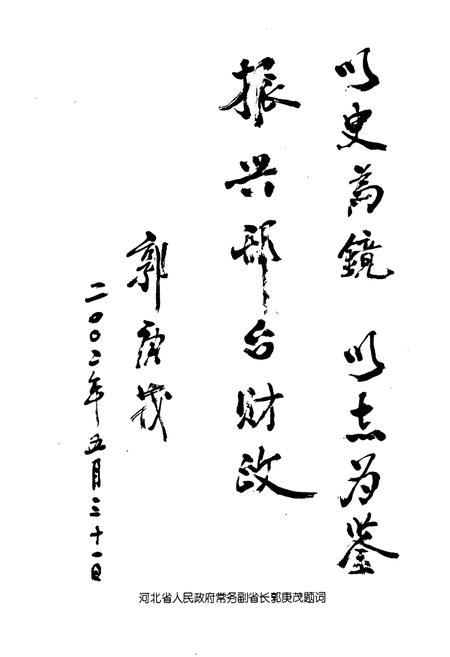 以史為鏡 以志为鉴
振兴邢台财政
郭庚茂
二〇〇二年五月三十一日
河北省人民政府常务副省长郭庚茂题词